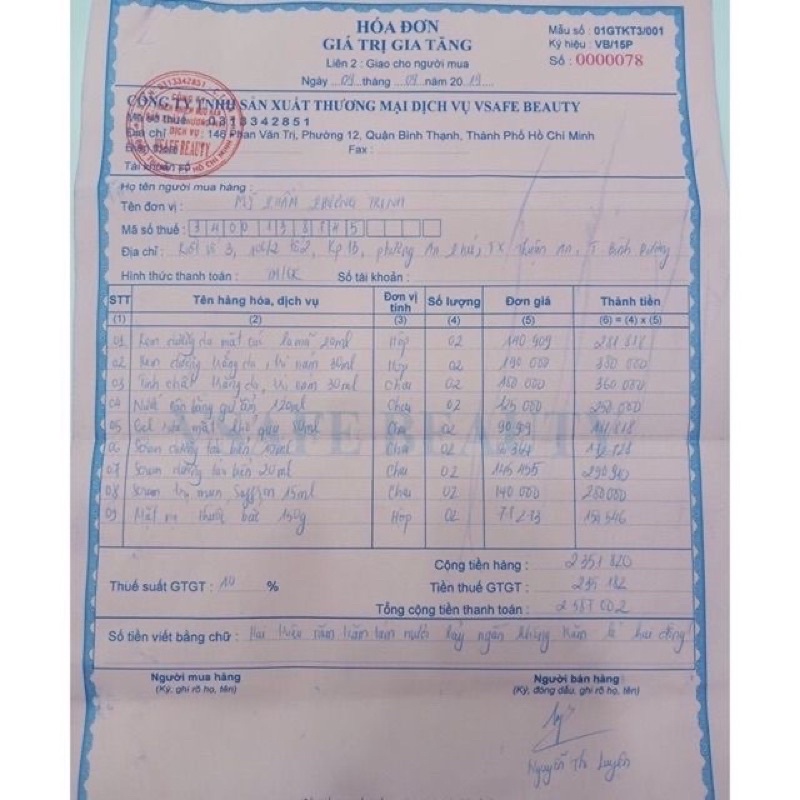 HÓA ĐƠN
GIÁ TRỊ GIA TĂNG
Liên 2 : Giao cho người mua
Ngày 04 tháng 04 năm 2019
Mẫu số : 01GTKT3/001
Ký hiệu : VB/15P
Số : 0000078
CÔNG TY TNHH SẢN XUẤT THƯƠNG MẠI DỊCH VỤ VSAFE BEAUTY
Mã số thuế : 0313342851
Địa chỉ : 146 Phan Văn Trị, Phường 12, Quận Bình Thạnh, Thành Phố Hồ Chí Minh
Fax :
Tài khoản số
Họ tên người mua hàng :
Tên đơn vị : MỸ PHƯƠNG TRINH
Mã số thuế :
Địa chỉ : Kp 1B, phường An Phú, TX Thuận An, T Bình Dương
Hình thức thanh toán : TM/CK Số tài khoản :
STT Tên hàng hóa, dịch vụ Đơn vị tính Số lượng Đơn giá Thành tiền
(1) (2) (3) (4) (5) (6) = (4) x (5)
01 Kem dưỡng da mặt 20ml Hộp 02 140 909 281 818
02 Kem dưỡng trắng da, trị nám 30ml Hộp 02 190 000 380 000
03 Tinh chất trắng da, trị nám 30ml Chai 02 180 000 360 000
04 Nước 120ml Chai 02 125 000 250 000
05 Gel rửa mặt Chai 02 90 909 181 818
06 Serum dưỡng tảo biển 10ml Chai 02
07 Serum dưỡng tảo biển 20ml Chai 02 145 455 290 910
08 Serum trị mụn Saffron 15ml Chai 02 140 000 280 000
09 Mặt nạ thuốc bắc 150g Hộp 02
VSAFE BEAUTY
Cộng tiền hàng : 2 351 820
Thuế suất GTGT : 10 % Tiền thuế GTGT : 235 182
Tổng cộng tiền thanh toán : 2 587 002
Số tiền viết bằng chữ : Hai triệu năm trăm tám mươi bảy ngàn không trăm lẻ hai đồng
Người mua hàng
(Ký, ghi rõ họ, tên)
Người bán hàng
(Ký, đóng dấu, ghi rõ họ, tên)
Nguyễn Thị Luyện